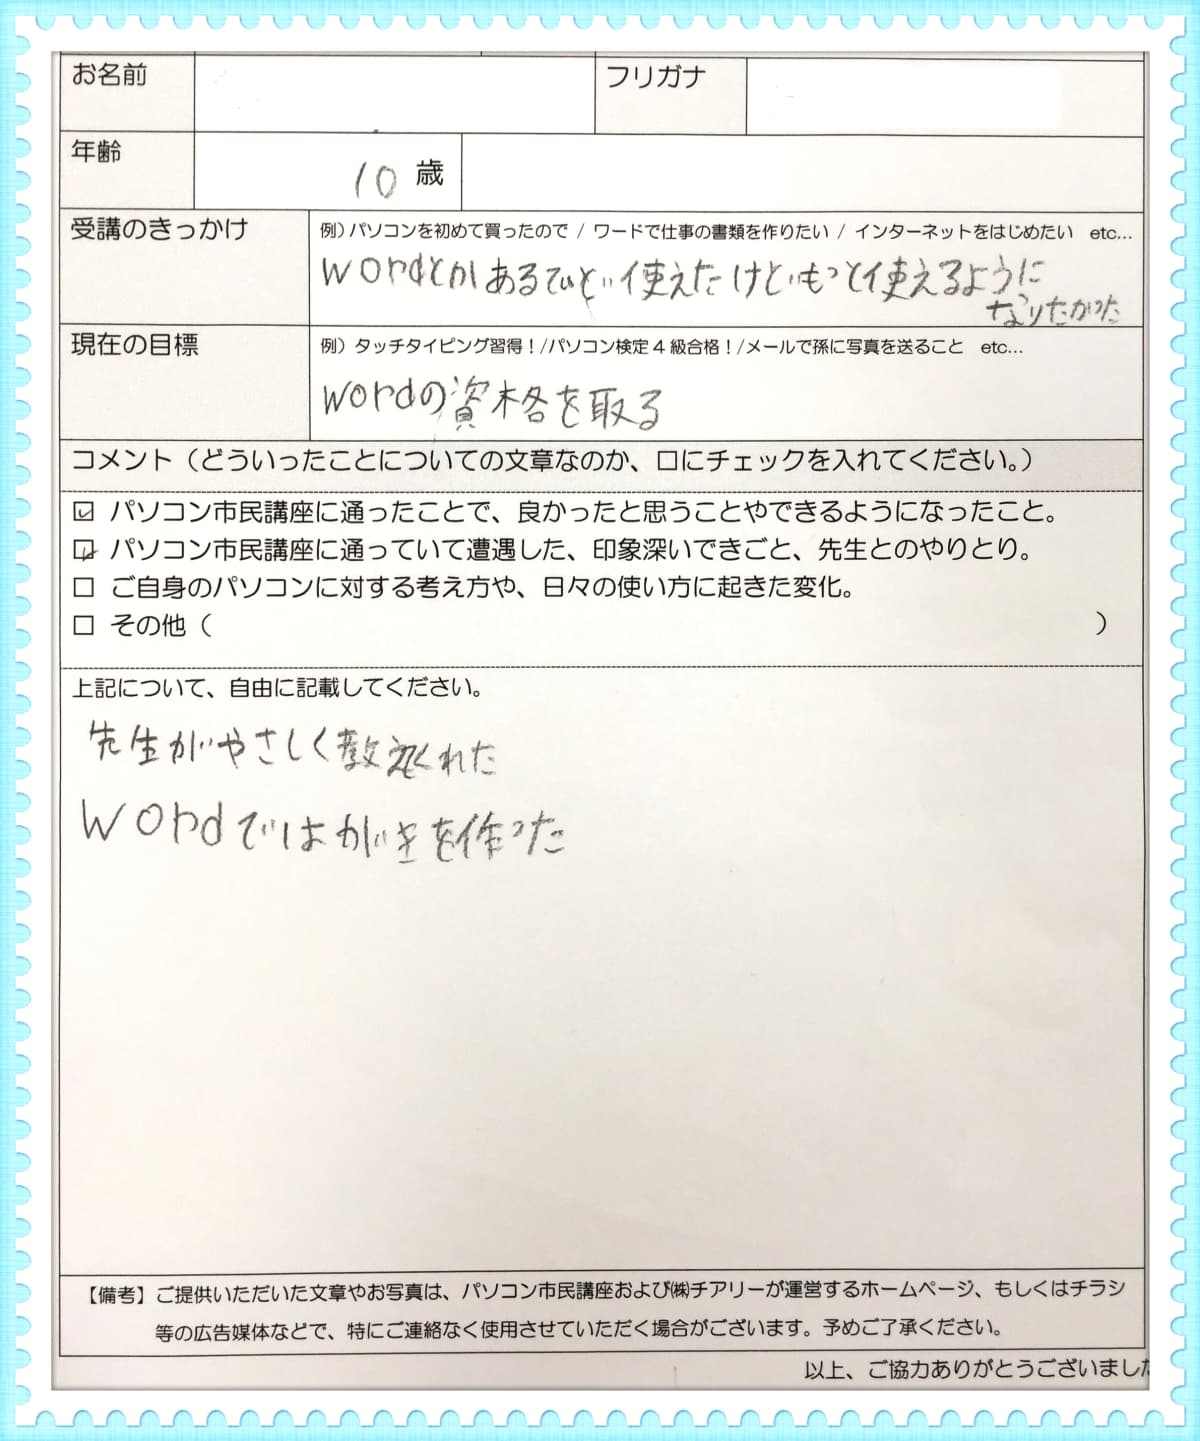 お名前 フリガナ
年齢 10 歳
受講のきっかけ 例)パソコンを初めて買ったので / ワードで仕事の書類を作りたい / インターネットをはじめたい etc...
wordとかあるていど使えたけどもっと使えるように
なりたかった
現在の目標 例)タッチタイピング習得!/パソコン検定4級合格!/メールで孫に写真を送ること etc...
wordの資格を取る
コメント(どういったことについての文章なのか、口にチェックを入れてください。)
☑ パソコン市民講座に通ったことで、良かったと思うことやできるようになったこと。
☑ パソコン市民講座に通っていて遭遇した、印象深いできごと、先生とのやりとり。
☐ ご自身のパソコンに対する考え方や、日々の使い方に起きた変化。
☐ その他( )
上記について、自由に記載してください。
先生がやさしく教えてくれた
wordではがきを作った
【備考】ご提供いただいた文章やお写真は、パソコン市民講座および㈱チアリーが運営するホームページ、もしくはチラシ
等の広告媒体などで、特にご連絡なく使用させていただく場合がございます。予めご了承ください。
以上、ご協力ありがとうございました